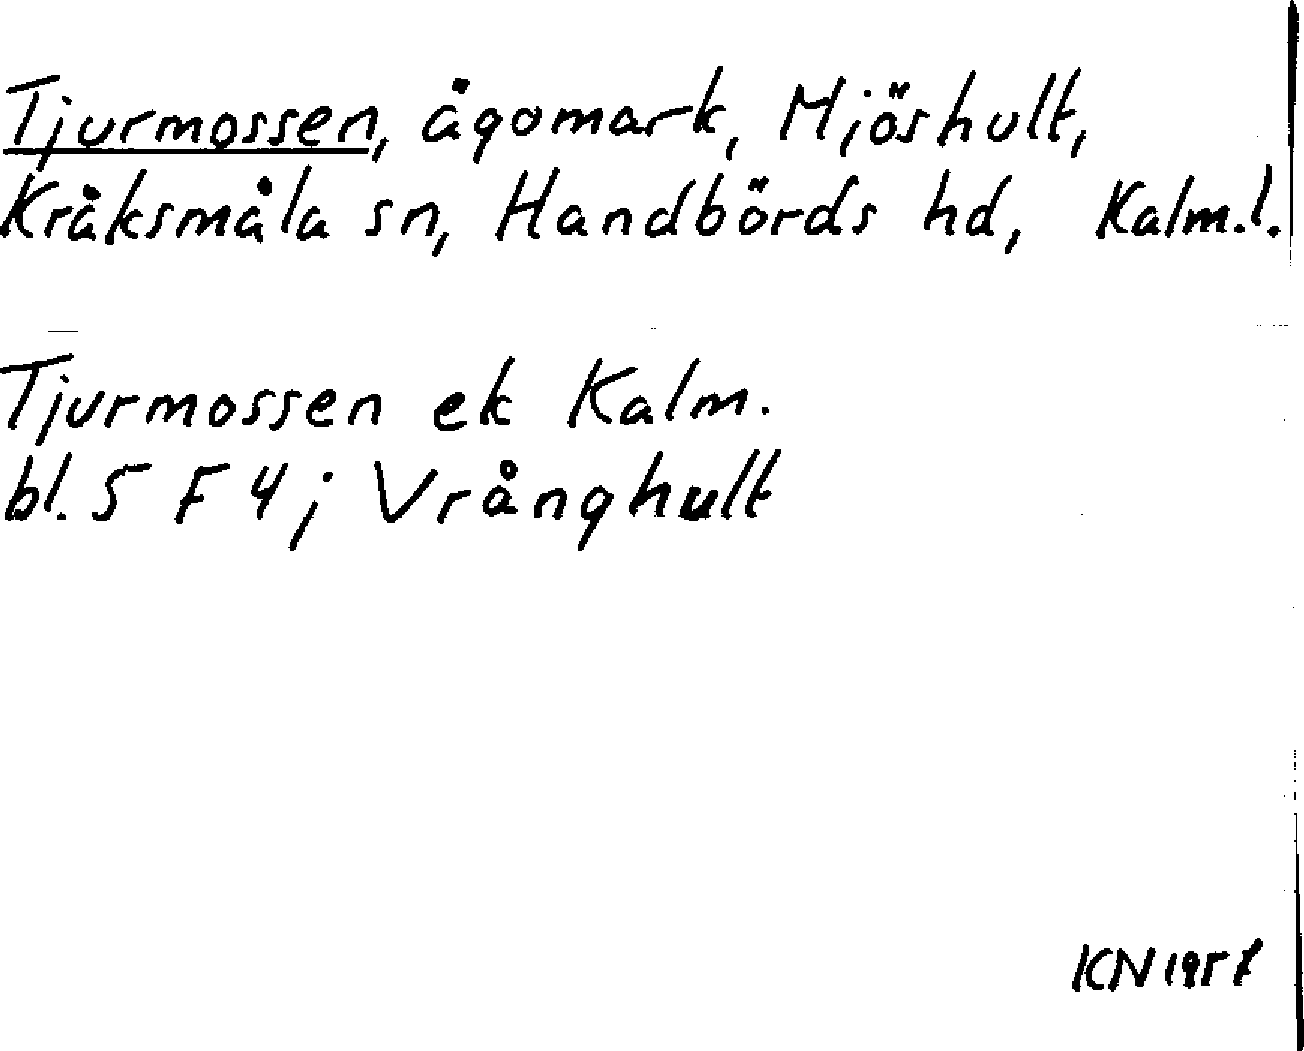 Tjurmossen, ägomark, Mjöshult,
Kråksmåla sn, Handbörds hd, Kalm.l.
Tjurmossen ek Kalm.
bl. 5 F 4 j Vrånghult
KN